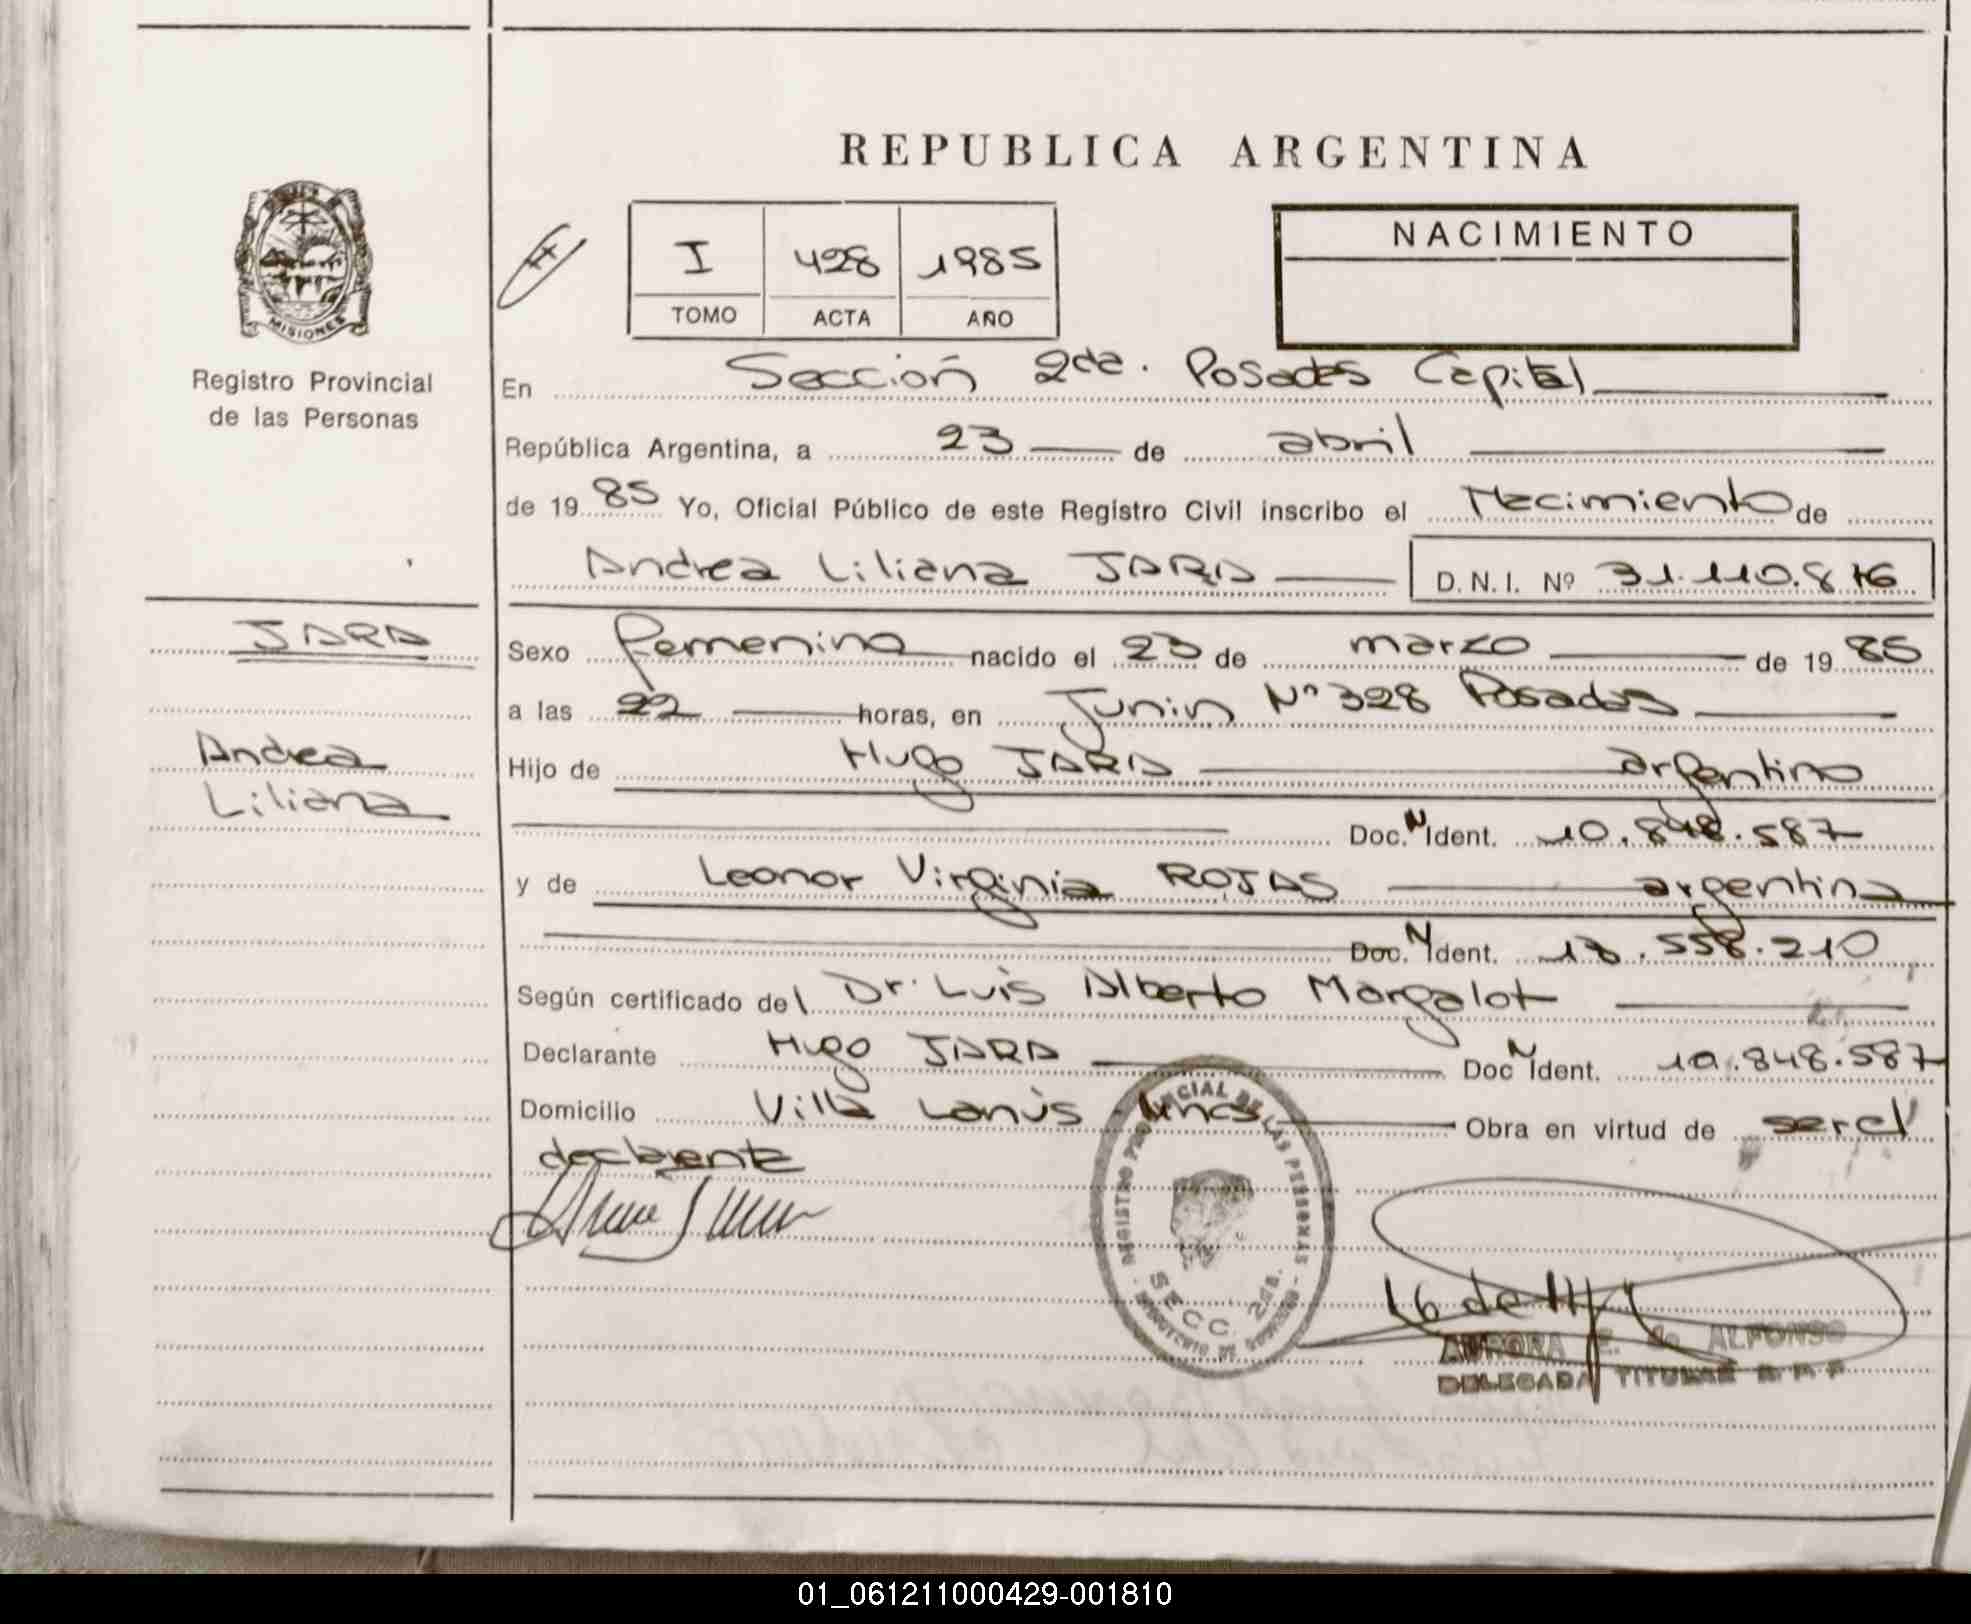 REPUBLICA ARGENTINA
MISIONES
Registro Provincial
de las Personas
I 428 1985
TOMO ACTA AÑO
NACIMIENTO
En Sección 2da. Posadas Capital
República Argentina, a 23 de abril
de 1985 Yo, Oficial Público de este Registro Civil inscribo el Nacimiento de
Andrea Liliana JARA D.N.I. Nº 31.110.8
JARA
Andrea
Liliana
Sexo femenino nacido el 23 de marzo de 1985
a las 22 horas, en Junin Nº 328 Posadas
Hijo de Hugo JARA argentino
Doc. N Ident. 10.848.587
y de Leonor Virginia ROJAS argentina
Doc. N Ident. 558.210
Según certificado del Dr. Luis Alberto Margalot
Declarante Hugo JARA Doc N Ident. 10.848.587
Domicilio Villa Lanús Mnes Obra en virtud de ser el
declarante
REGISTRO PROVINCIAL DE LAS PERSONAS
SECC. 2da.
AURORA E. de ALFONSO
DELEGADA TITULAR R.P.P
01_061211000429-001810